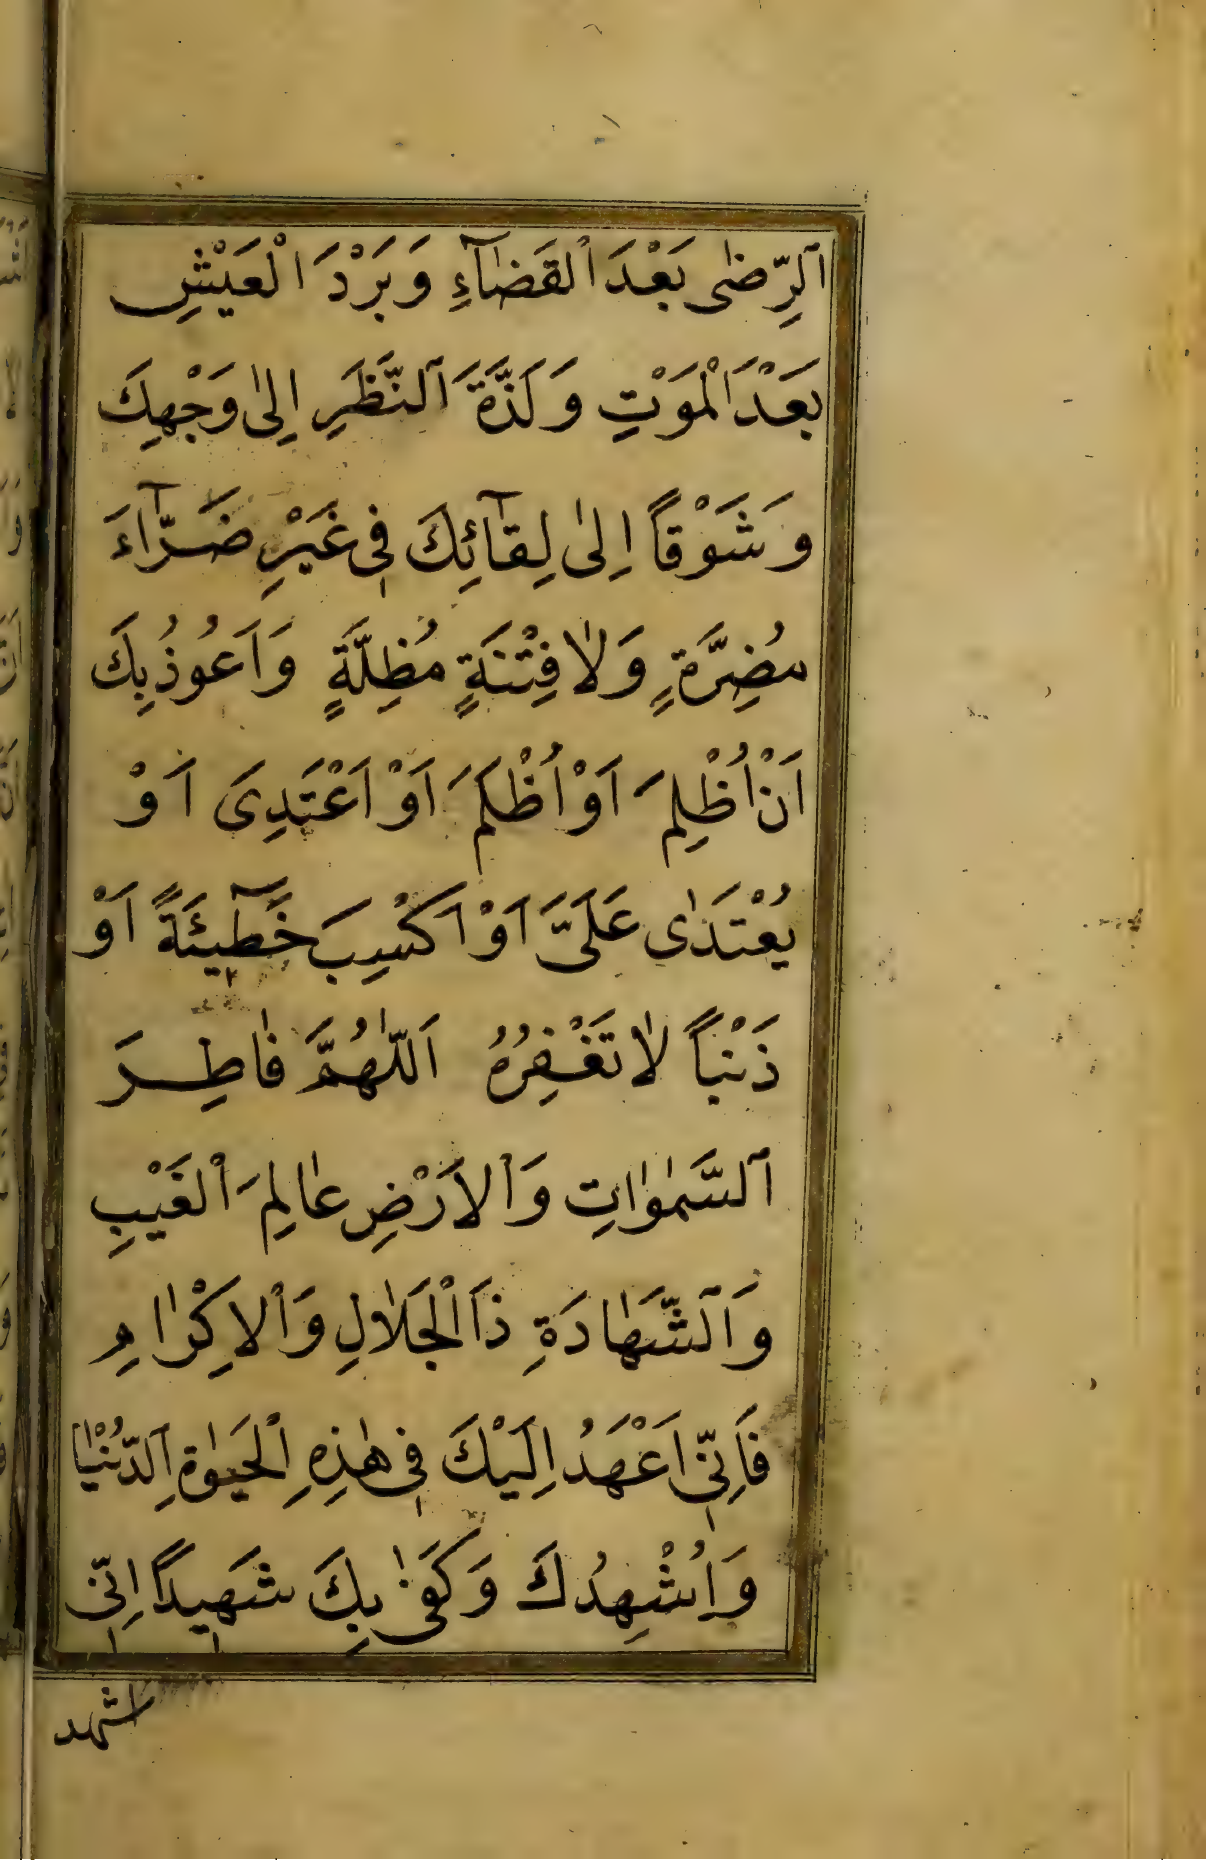 اَلرِّضٰى بَعْدَ الْقَضٰآءِ وَبَرْدَ الْعَيْشِ
بَعْدَ الْمَوْتِ وَلَذَّةَ اَلنَّظَرِ اِلىٰ وَجْهِكَ
وَشَوْقًا اِلىٰ لِقٰآئِكَ فِى غَيْرِ ضَرّٰآءَ
مُضِرَّةٍ وَلٰا فِتْنَةٍ مُظِلَّةٍ وَاَعُوذُ بِكَ
اَنْ اُظْلِمَ اَوْ اُظْلَمَ اَوْ اَعْتَدِىَ اَوْ
يُعْتَدٰى عَلَىَّ اَوْ اَكْسِبَ خَطٓيئَةً اَوْ
ذَنْبًا لٰا تَغْفِرُهُ اَللّٰهُمَّ فٰاطِرَ
اَلسَّمٰوٰاتِ وَالْاَرْضِ عٰالِمَ الْغَيْبِ
وَاَلشَّهٰادَةِ ذَا الْجَلٰالِ وَالْاِكْرٰامِ
فَاِنِّى اَعْهَدُ اِلَيْكَ فِى هٰذِهِ الْحَيٰوةِ اَلدُّنْيٰا
وَاُشْهِدُكَ وَكَفىٰ بِكَ شَهِيدًا اِنِّى
اشهد